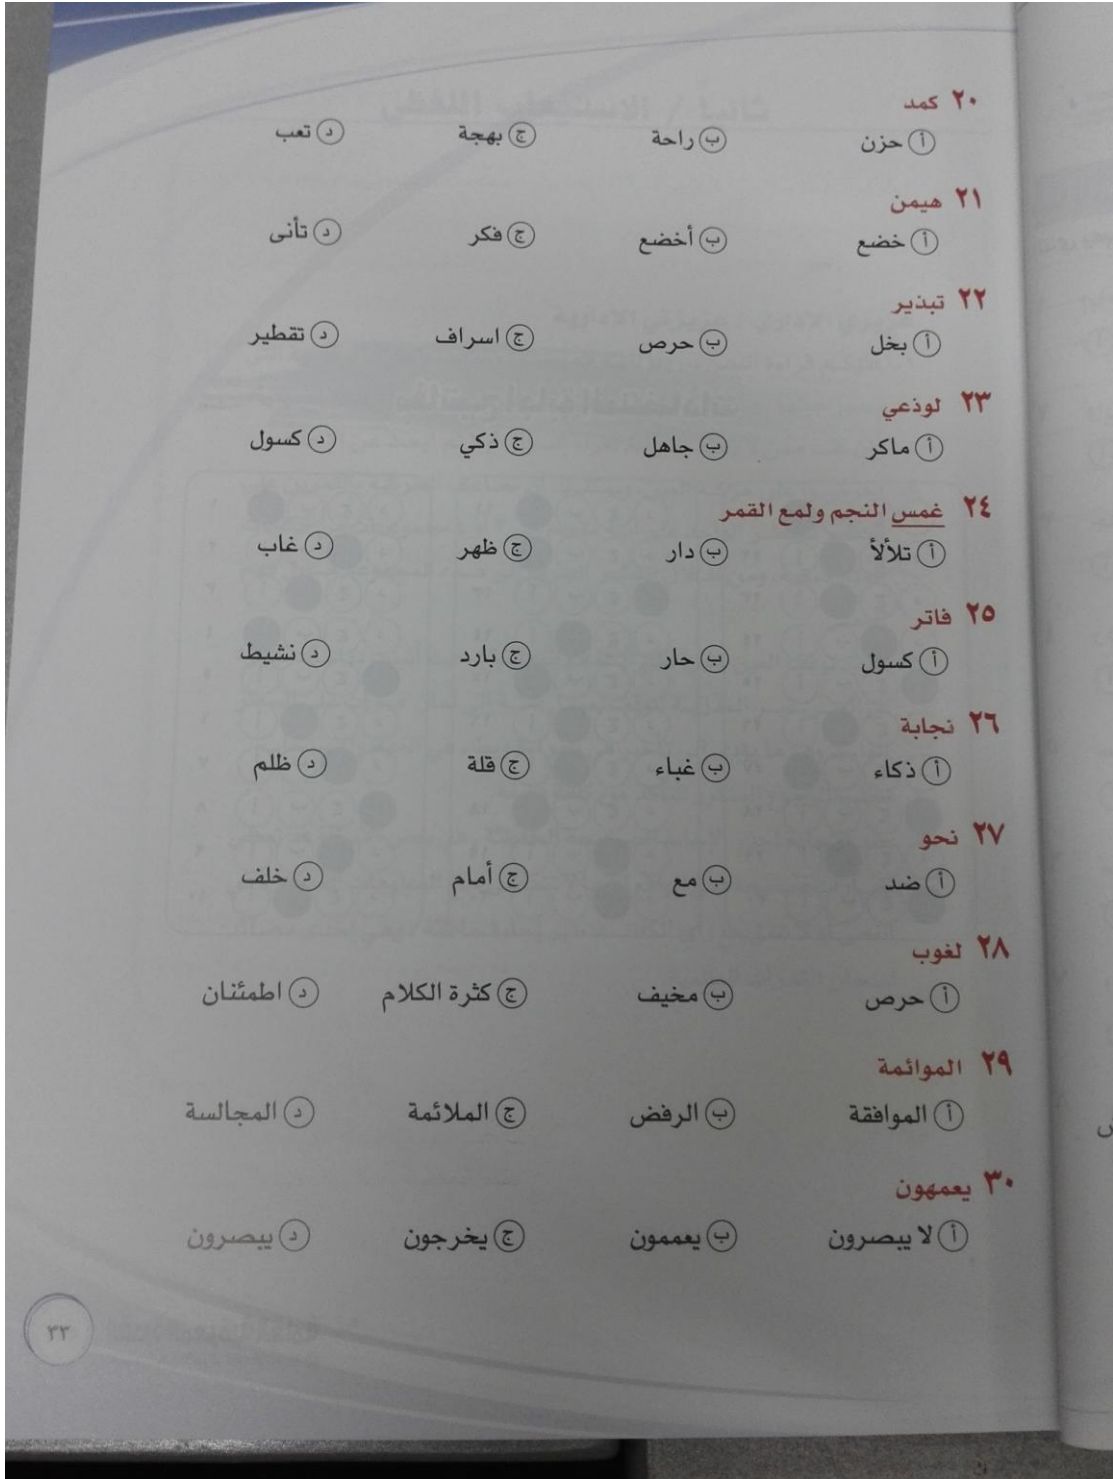 ٢٠ كمد
أ حزن ب راحة ج بهجة د تعب
٢١ هيمن
أ خضع ب أخضع ج فكر د تأنى
٢٢ تبذير
أ بخل ب حرص ج اسراف د تقطير
٢٣ لوذعي
أ ماكر ب جاهل ج ذكي د كسول
٢٤ غمس النجم ولمع القمر
أ تلألأ ب دار ج ظهر د غاب
٢٥ فاتر
أ كسول ب حار ج بارد د نشيط
٢٦ نجابة
أ ذكاء ب غباء ج قلة د ظلم
٢٧ نحو
أ ضد ب مع ج أمام د خلف
٢٨ لغوب
أ حرص ب مخيف ج كثرة الكلام د اطمئنان
٢٩ الموائمة
أ الموافقة ب الرفض ج الملائمة د المجالسة
٣٠ يعمهون
أ لا يبصرون ب يعممون ج يخرجون د يبصرون
٣٣